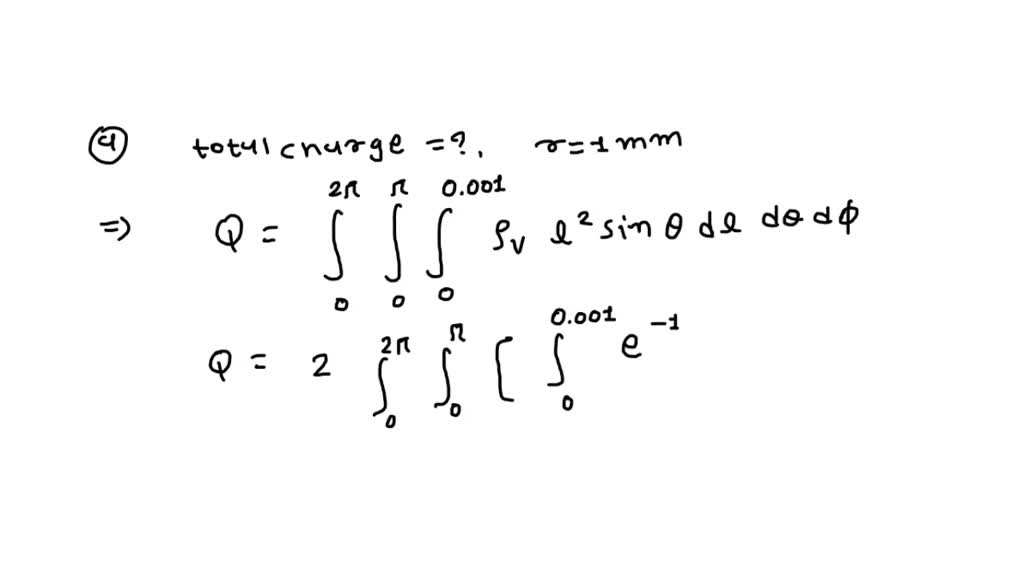 ④ total churge = ?, r = 1 mm
⇒ Q = ∫₀^{2π} ∫₀^{π} ∫₀^{0.001} ρᵥ l² sin θ dl dθ dφ
Q = 2 ∫₀^{2π} ∫₀^{π} [ ∫₀^{0.001} e⁻¹